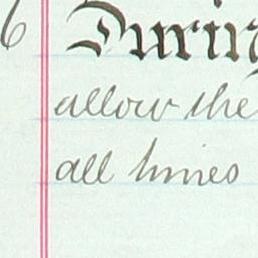 6 During
allow the
all times